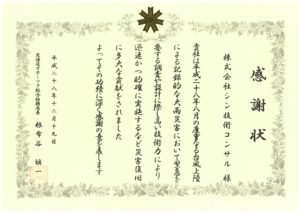 感謝状
株式会社シン技術コンサル 様
貴社は平成二十八年八月の度重なる台風上陸
による記録的な大雨災害において緊急を
要する調査や設計に際し高い技術力により
迅速かつ的確に実施するなど災害復旧
に多大な貢献をされました
よってその功績に深く感謝の意を表します
平成二十八年十二月十九日
北海道オホーツク総合振興局長 根布谷 禎一